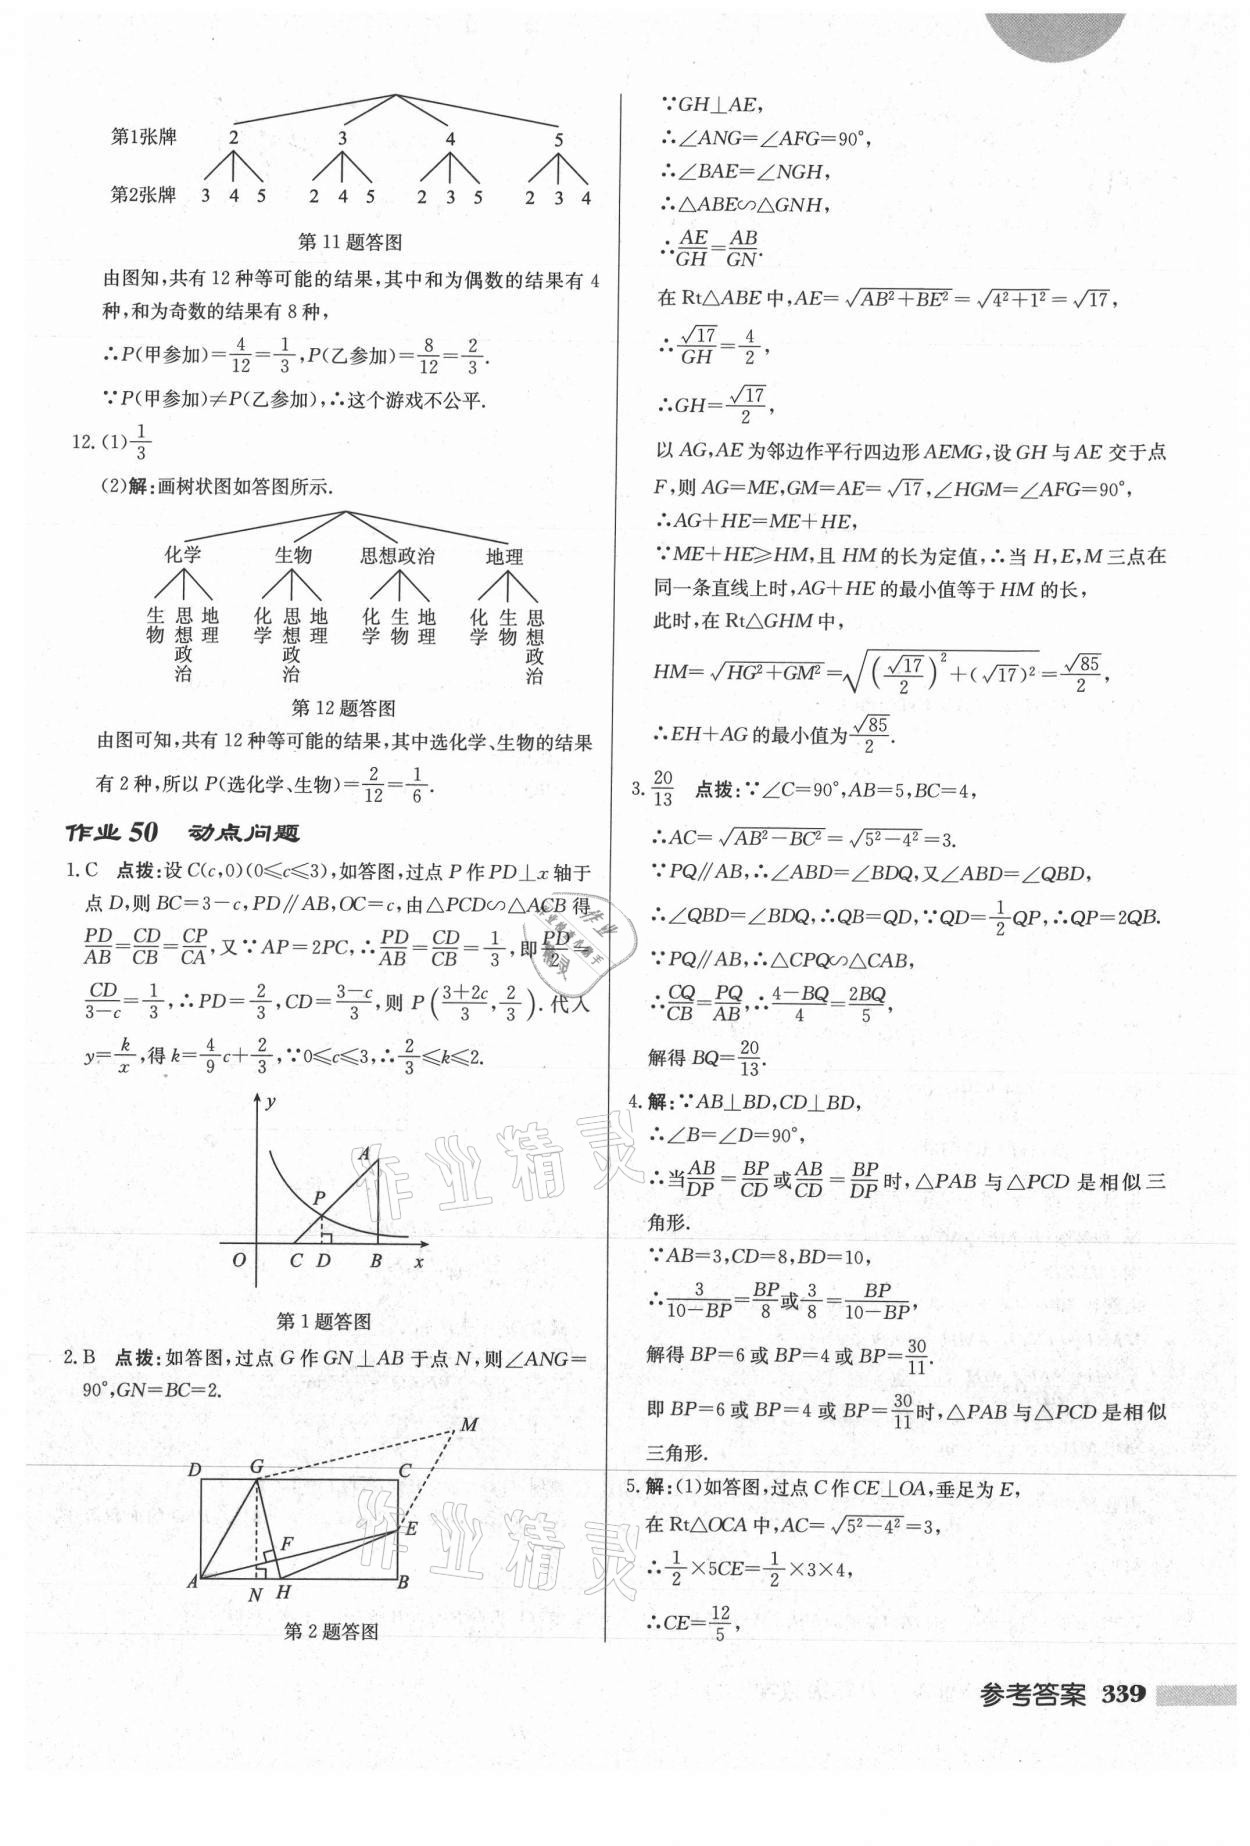 第1张牌 2 3 4 5
第2张牌 3 4 5 2 4 5 2 3 5 2 3 4
第11题答图
由图知,共有12种等可能的结果,其中和为偶数的结果有4
种,和为奇数的结果有8种,
∴P(甲参加)=4/12=1/3,P(乙参加)=8/12=2/3.
∵P(甲参加)≠P(乙参加),∴这个游戏不公平.
12.(1)1/3
(2)解:画树状图如答图所示.
化学 生物 思想政治 地理
生物 思想政治 地理 化学 思想政治 地理 化学 生物 地理 化学 生物 思想政治
第12题答图
由图可知,共有12种等可能的结果,其中选化学、生物的结果
有2种,所以P(选化学、生物)=2/12=1/6.
作业50 动点问题
1.C 点拨:设C(c,0)(0≤c≤3),如答图,过点P作PD⊥x轴于
点D,则BC=3-c,PD∥AB,OC=c,由△PCD∽△ACB得
PD/AB=CD/CB=CP/CA,又∵AP=2PC,∴PD/AB=CD/CB=1/3,即PD/2=
CD/(3-c)=1/3,∴PD=2/3,CD=(3-c)/3,则P((3+2c)/3,2/3).代入
y=k/x,得k=4/9c+2/3,∵0≤c≤3,∴2/3≤k≤2.
y
A
P
O C D B x
第1题答图
2.B 点拨:如答图,过点G作GN⊥AB于点N,则∠ANG=
90°,GN=BC=2.
M
D G C
E
F
A N H B
第2题答图
∵GH⊥AE,
∴∠ANG=∠AFG=90°,
∴∠BAE=∠NGH,
∴△ABE∽△GNH,
∴AE/GH=AB/GN.
在Rt△ABE中,AE=√(AB²+BE²)=√(4²+1²)=√17,
∴√17/GH=4/2,
∴GH=√17/2,
以AG,AE为邻边作平行四边形AEMG,设GH与AE交于点
F,则AG=ME,GM=AE=√17,∠HGM=∠AFG=90°,
∴AG+HE=ME+HE,
∵ME+HE≥HM,且HM的长为定值,∴当H,E,M三点在
同一条直线上时,AG+HE的最小值等于HM的长,
此时,在Rt△GHM中,
HM=√(HG²+GM²)=√((√17/2)²+(√17)²)=√85/2,
∴EH+AG的最小值为√85/2.
3.20/13 点拨:∵∠C=90°,AB=5,BC=4,
∴AC=√(AB²-BC²)=√(5²-4²)=3.
∵PQ∥AB,∴∠ABD=∠BDQ,又∠ABD=∠QBD,
∴∠QBD=∠BDQ,∴QB=QD,∵QD=1/2QP,∴QP=2QB.
∵PQ∥AB,∴△CPQ∽△CAB,
∴CQ/CB=PQ/AB,∴(4-BQ)/4=2BQ/5,
解得BQ=20/13.
4.解:∵AB⊥BD,CD⊥BD,
∴∠B=∠D=90°,
∴当AB/DP=BP/CD或AB/CD=BP/DP时,△PAB与△PCD是相似三
角形.
∵AB=3,CD=8,BD=10,
∴3/(10-BP)=BP/8或3/8=BP/(10-BP),
解得BP=6或BP=4或BP=30/11.
即BP=6或BP=4或BP=30/11时,△PAB与△PCD是相似
三角形.
5.解:(1)如答图,过点C作CE⊥OA,垂足为E,
在Rt△OCA中,AC=√(5²-4²)=3,
∴1/2×5CE=1/2×3×4,
∴CE=12/5,
参考答案 339
作业精灵
作业精灵